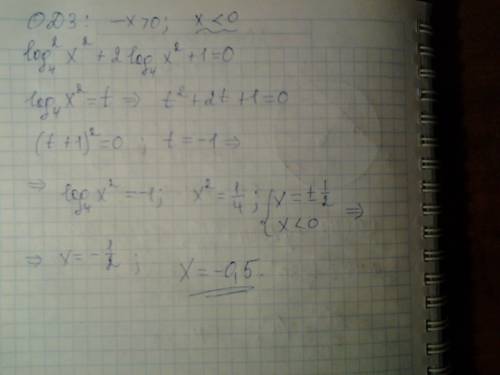 ОДЗ: -x>0; x<0
log₄² x² + 2 log₄ x² + 1 = 0
log₄ x² = t ⇒ t² + 2t + 1 = 0
(t+1)² = 0 ; t = -1 ⇒
⇒ log₄ x² = -1; x² = 1/4 ; { x = ± 1/2 x < 0 ⇒
⇒ x = - 1/2 ; x = -0,5.